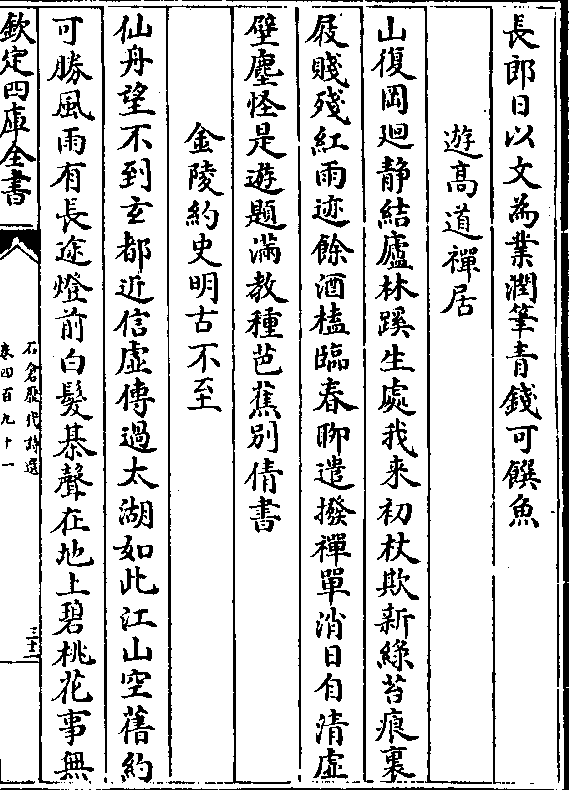 長郎日以文為業潤筆青錢可饌魚
遊高道禪居
山復岡迴静結廬林蹊生處我来初杖欺新綠苔痕裏
屐賤殘紅雨迹餘酒榼臨春聊遣撥禪單消日自清虛
壁塵怪是遊題滿教種芭蕉別倩書
金陵約史明古不至
仙舟望不到玄都近信虛傳過太湖如此江山空舊約
可勝風雨有長途燈前白髮棊聲在地上碧桃花事無
欽定四庫全書
石倉歷代詩選
卷四百九十一
三十二